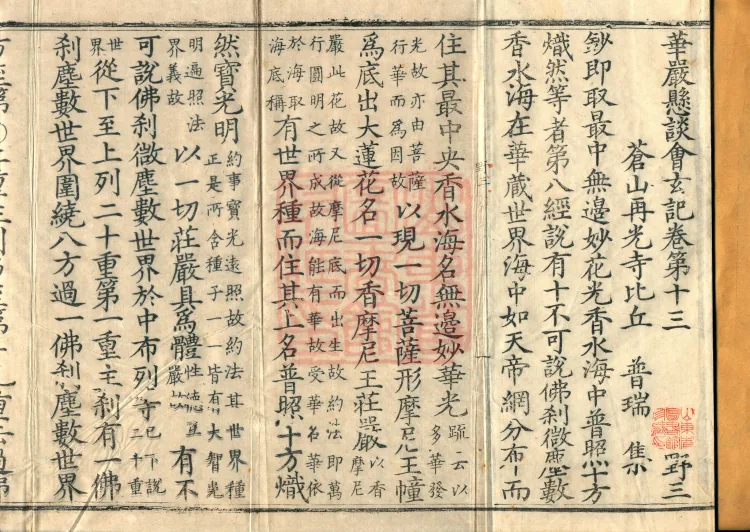 華嚴懸談會玄記卷第十三 野三
蒼山再光寺比丘 普瑞 集
鈔即取最中無邊妙花光香水海中普照十方
熾然等者第八經說有十不可說佛刹微塵數
香水海在華藏世界海中如天帝網分布而
住其最中央香水海名無邊妙華光疏云以多華發
光故亦由菩薩行華而爲因故以現一切菩薩形摩尼王幢
爲底出大蓮花名一切香摩尼王莊嚴以香摩尼
嚴此花故又從摩尼底而出生故約法即萬
行圓明之所成故海能有華故受華名華依
於海取海底稱有世界種而住其上名普照十方熾
然寶光明約事寶光遠照故約法其世界種
正是所含種子一一皆有大智光
明遍照法界義故以一切莊嚴具爲體性德嚴故有不
可說佛刹微塵數世界於中布列等已下說二十重
世界從下至上列二十重第一重主刹有一佛
刹塵數世界圍繞八方過一佛刹塵數世界